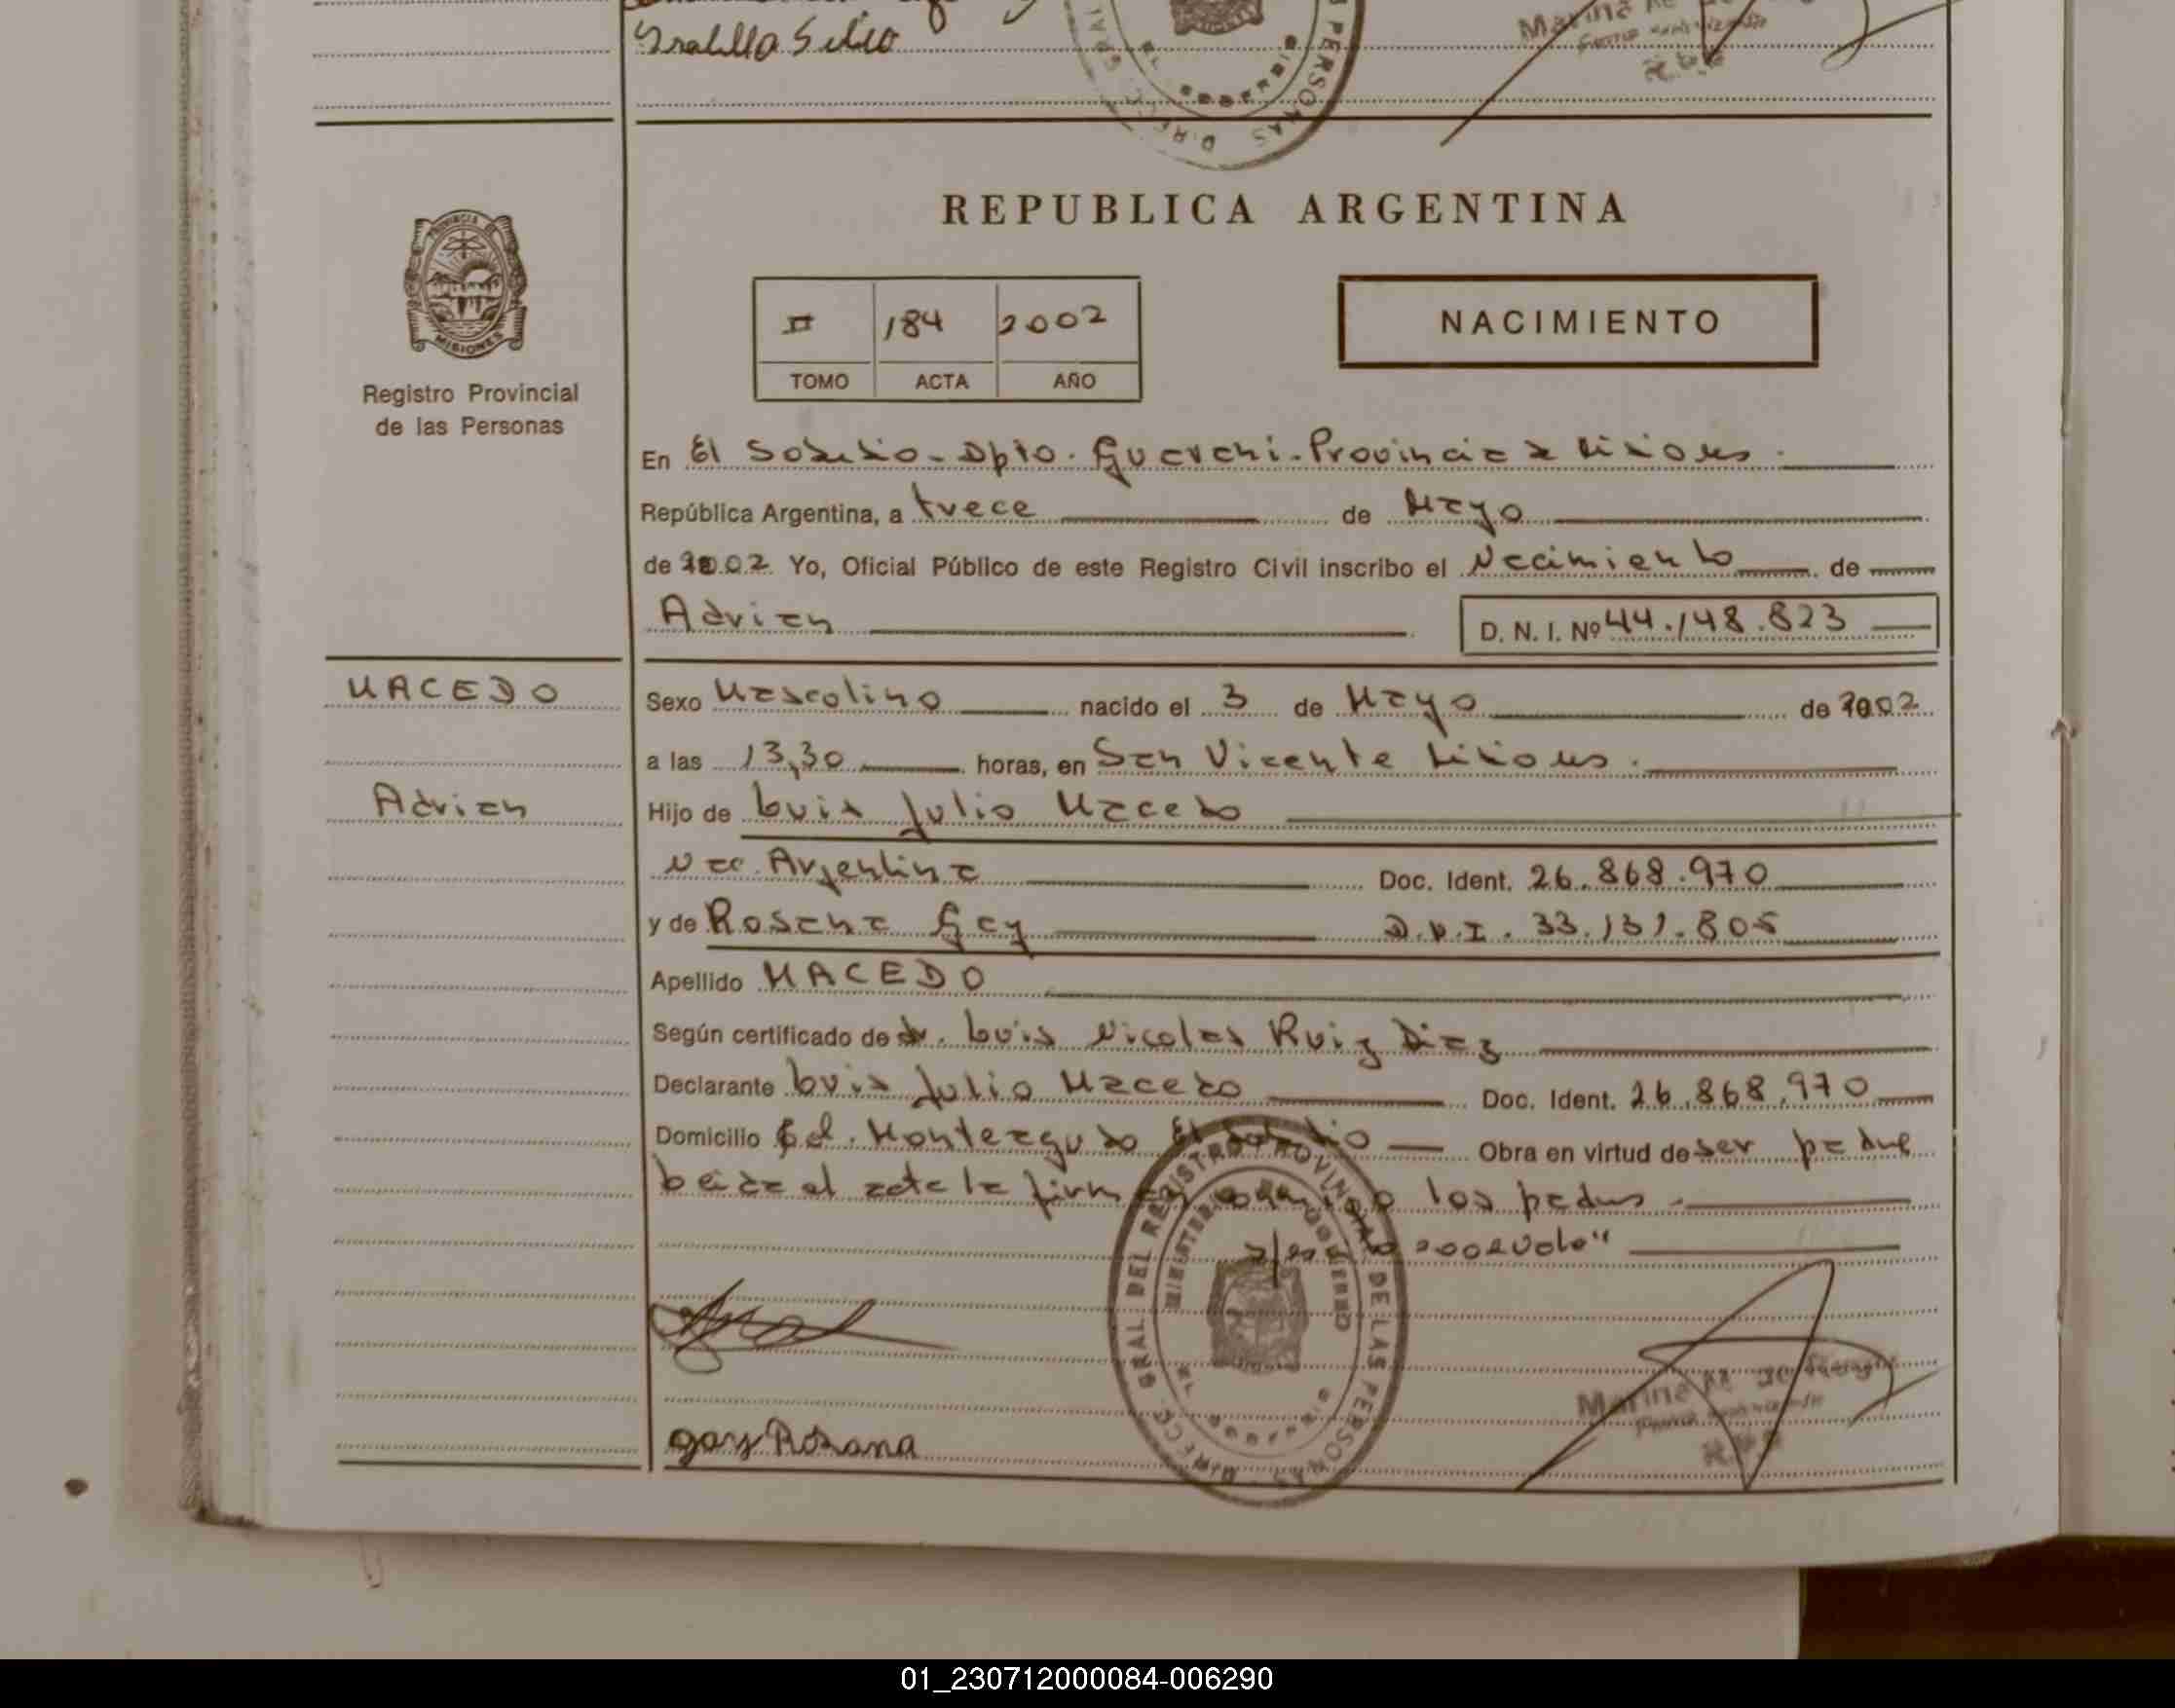 REPUBLICA ARGENTINA
PROVINCIA DE
MISIONES
Registro Provincial
de las Personas
II 184 2002
TOMO ACTA AÑO
NACIMIENTO
En El Soberbio - Dpto. Guarani - Provincia de Misiones.
República Argentina, a trece de Mayo
de 2002 Yo, Oficial Público de este Registro Civil inscribo el Nacimiento de
Adrian D. N. I. Nº 44.148.823
MACEDO
Adrian
Sexo Masculino nacido el 3 de Mayo de 2002
a las 13,30 horas, en San Vicente Misiones.
Hijo de Luis Julio Macedo
Nac. Argentina Doc. Ident. 26.868.970
y de Rosana Gay D.N.I. 33.131.805
Apellido MACEDO
Según certificado de dr. Luis Nicolas Ruiz Diaz
Declarante Luis Julio Macedo Doc. Ident. 26.868.970
Domicilio Monteagudo El Soberbio Obra en virtud de ser padre
Leida el acta la firman los padres.
DIREC. GRAL. DEL REGISTRO PROVINCIAL DE LAS PERSONAS
MINISTERIO DE GOBIERNO
EL SOBERBIO
gay Rosana
01_230712000084-006290